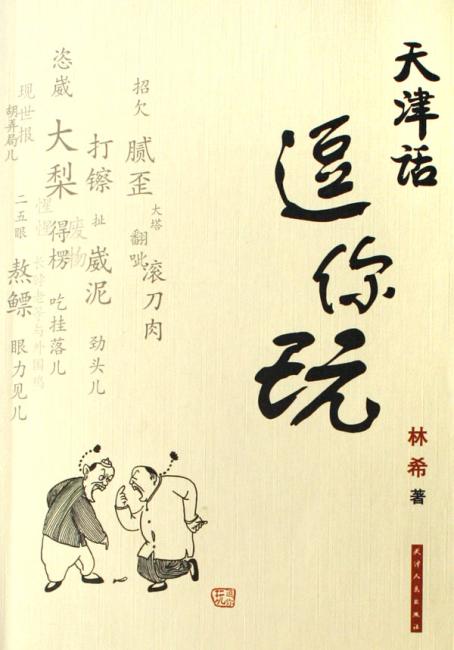 天津话
逗你玩
林希 著
天津人民出版社
招欠
腻歪
大塔
翻呲
滚刀肉
打镲
扯
崴泥
劲头儿
恣崴
大梨
得楞
吃挂落儿
熬鳔
眼力见儿
现世报
胡弄局儿
二五眼
惺惺
废物